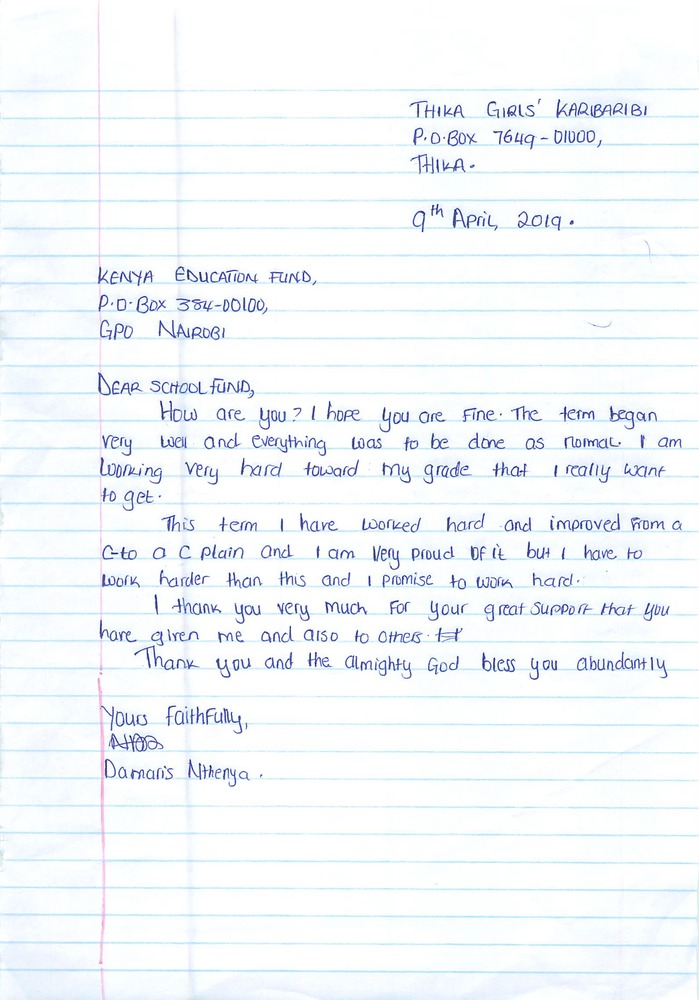 THIKA GIRLS' KARIBARIBI
P.O.BOX 7649-01000,
THIKA.
9th April, 2019.
KENYA EDUCATION FUND,
P.O.BOX 384-00100,
GPO NAIROBI
DEAR SCHOOL FUND,
How are you? I hope you are fine. The term began
very well and everything was to be done as normal. I am
working very hard toward my grade that I really want
to get.
This term I have worked hard and improved from a
C- to a C plain and I am very proud of it but I have to
work harder than this and I promise to work hard.
I thank you very much for your great support that you
have given me and also to others.
Thank you and the almighty God bless you abundantly
Yours faithfully,
Damaris Nthenya.